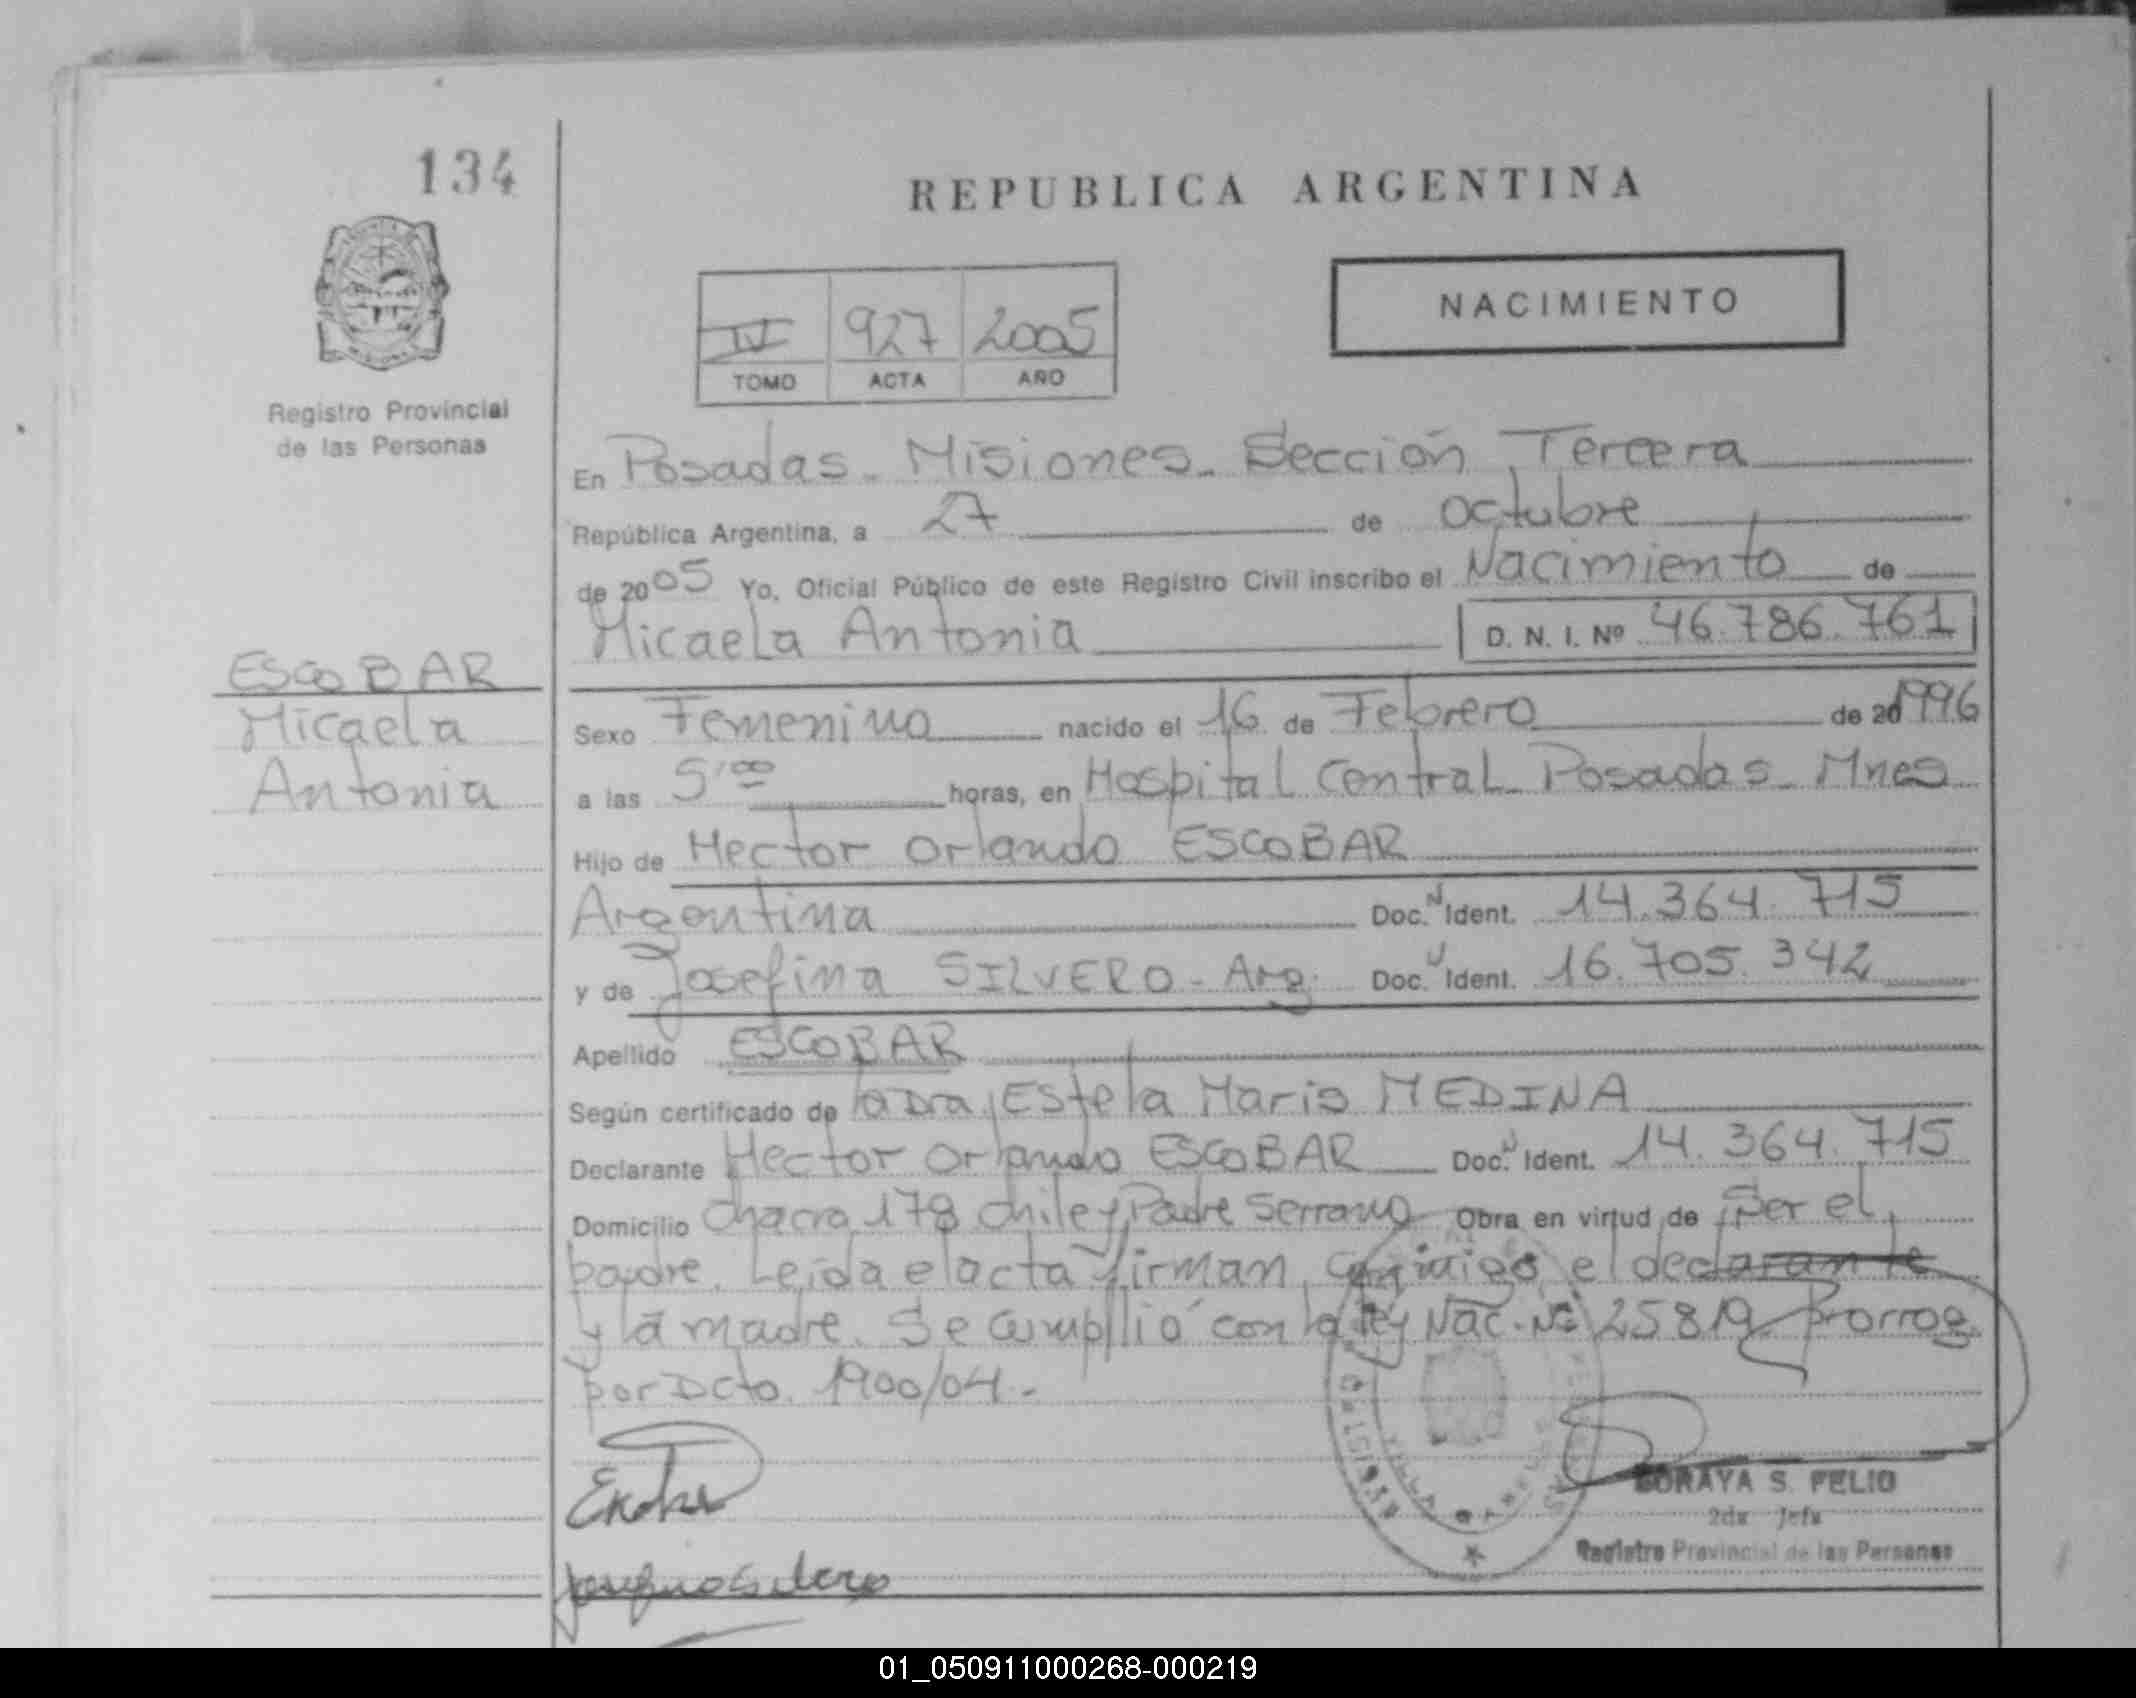 134
REPUBLICA ARGENTINA
NACIMIENTO
IV 927 2005
TOMO ACTA AÑO
Registro Provincial
de las Personas
En Posadas - Misiones - Sección Tercera
República Argentina, a 27 de octubre
de 2005 Yo, Oficial Público de este Registro Civil inscribo el Nacimiento de
Micaela Antonia D. N. I. Nº 46.786.761
ESCOBAR
Micaela
Antonia
Sexo Femenino nacido el 16 de Febrero de 20 1996
a las 5'00 horas, en Hospital Central - Posadas - Mnes
Hijo de Hector Orlando ESCOBAR
Argentina Doc. N Ident. 14.364.715
y de Josefina SILVERO - Arg. Doc. U Ident. 16.705.342
Apellido ESCOBAR
Según certificado de la Dra, Estela Maris MEDINA
Declarante Hector Orlando ESCOBAR Doc. N Ident. 14.364.715
Domicilio Chacra 178 Chile y Padre Serrano Obra en virtud de Ser el
padre. Leída el acta firman conmigo el declarante
y la madre. Se cumplió con la ley Nac. Nº 25819 prorrog.
por Dcto. 1900/04.-
Josefina Silvero
SORAYA S. FELIO
2da Jefa
Registro Provincial de las Personas
01_050911000268-000219